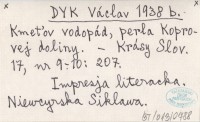 DYK Václav 1938 b.
Kmeťov vodopád, perla Kopro-
vej doliny. — Krásy Slov.
17, nr 9-10: 207.
Impresja literacka.
Niewcyrska Siklawa.